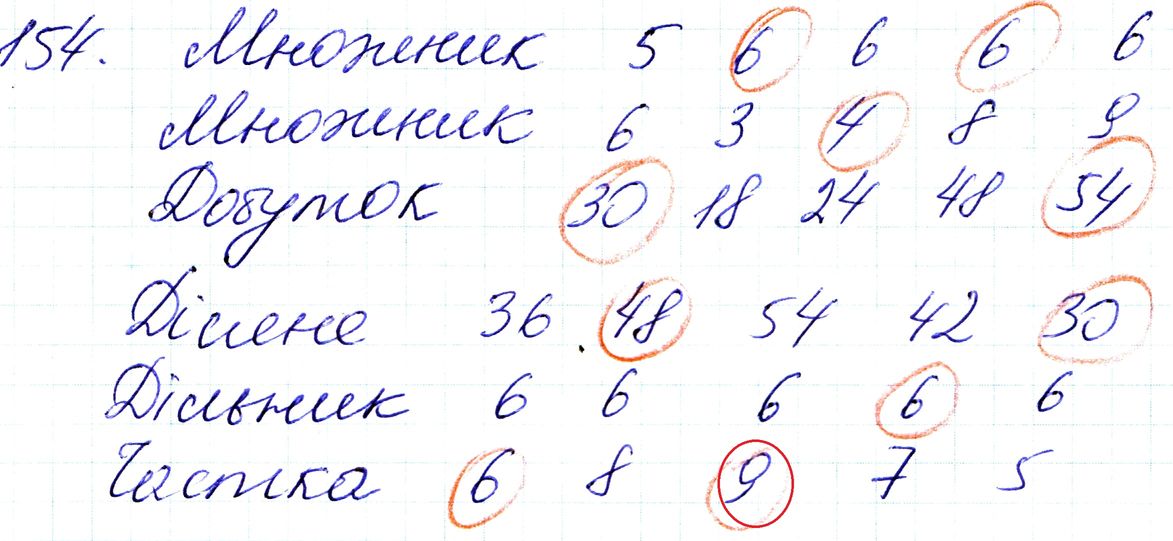 154. Множник 5 6 6 6 6
Множник 6 3 4 8 9
Добуток 30 18 24 48 54
Ділене 36 48 54 42 30
Дільник 6 6 6 6 6
Частка 6 8 9 7 5